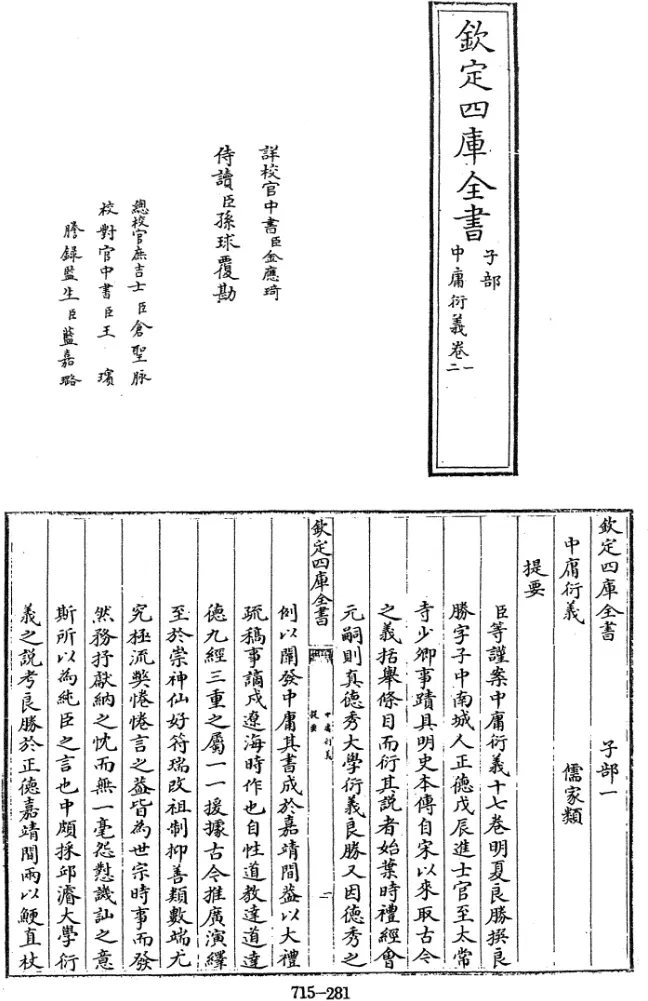 欽定四庫全書
子部
中庸衍義卷一
二
詳校官中書臣金應琦
侍讀臣孫球覆勘
總校官庶吉士臣倉聖脉
校對官中書臣王瑸
謄録監生臣藍嘉璐
欽定四庫全書 子部一
中庸衍義 儒家類
提要
臣等謹案中庸衍義十七卷明夏良勝撰良
勝字子中南城人正德戊辰進士官至太常
寺少卿事蹟具明史本傳自宋以來取古今
之義括舉條目而衍其説者始葉時禮經會
元嗣則真德秀大學衍義良勝又因德秀之
欽定四庫全書
中庸衍義
提要
二
例以闡發中庸其書成於嘉靖間葢以大禮
疏稿事謫戍遼海時作也自性道教達道達
德九經三重之屬一一援據古今推廣演繹
至於崇神仙好符瑞改祖制抑善類數端尤
究極流獘惓惓言之葢皆為世宗時事而發
然務抒獻納之忱而無一毫怨懟譏訕之意
斯所以為純臣之言也中頗採邱濬大學衍
義之説考良勝於正德嘉靖間兩以鯁直杖
715-281